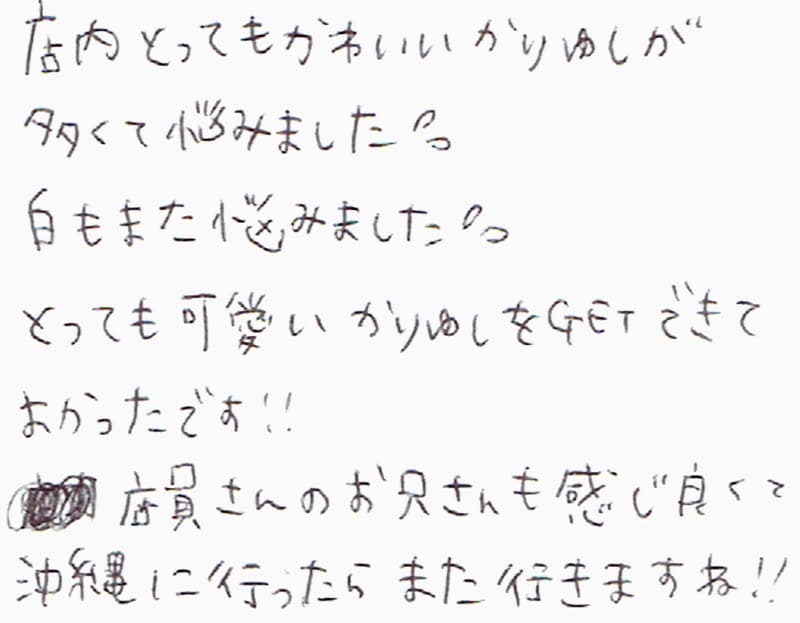 店内とってもかわいいかりゆしが
多くて悩みました!!
白もまた悩みました!!
とっても可愛いかりゆしをGETできて
よかったです!!
店員さんのお兄さんも感じ良くて
沖縄に行ったらまた行きますね!!